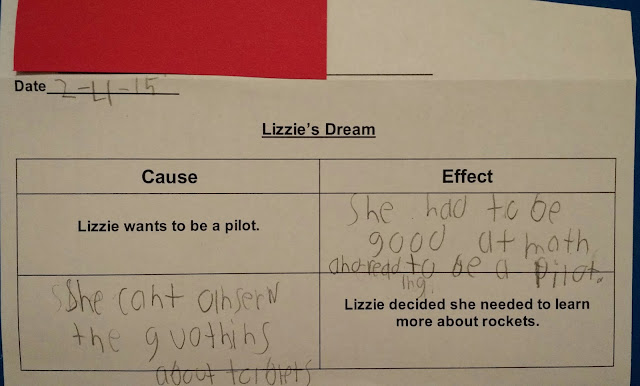 Date 2-4-15
Lizzie's Dream
Cause
Effect
Lizzie wants to be a pilot.
She had to be
good at math
and read
ing.
to be a pilot.
She cant
the
about
Lizzie decided she needed to learn
more about rockets.